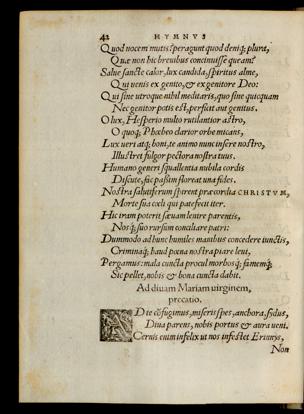 42 HYMNVS
Quod nocem mutis? peragunt quod deniq; plura,
Quæ non hic breuibus concinuisse queam?
Salue sancte calor, lux candida, spiritus alme,
Qui uenis ex genito, & ex genitore Deo:
Qui sine utroque nihil meditaris, quo sine quicquam
Nec genitor potis est, perficiat aut genitus.
O lux, Hesperio multo rutilantior astro,
O quoq; Phœbeo clarior orbe micans,
Lux ueri atq; boni, te animo nunc insere nostro,
Illustret fulgor pectora nostra tuus.
Humano generi squallentia nubila cordis
Discute, sic passim floreat una fides.
Nostra salutiferum sperent præcordia CHRISTVM,
Morte sua cœli qui patefecit iter.
Hic iram poterit sæuam lenire parentis,
Nosq; suo rursum conciliare patri:
Dummodo ad hunc humiles manibus concedere iunctis,
Criminaq; haud pœna nostra piare leui,
Pergamus: mala cuncta procul morbosq; famemq;
Sic pellet, nobis & bona cuncta dabit.
Ad diuam Mariam uirginem,
precatio.
AD te cõfugimus, miseris spes, anchora, sydus,
Diua parens, nobis portus & aura ueni.
Cernis enim infelix ut nos infestet Erinnys,
Non